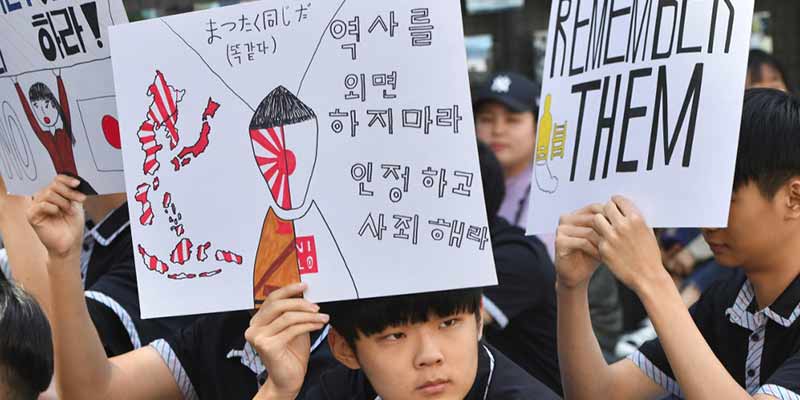 하라!
NO
まつたく同じだ
(똑같다)
역사를
외면
하지마라
인정하고
사죄해라
REMEMBER
THEM
NY